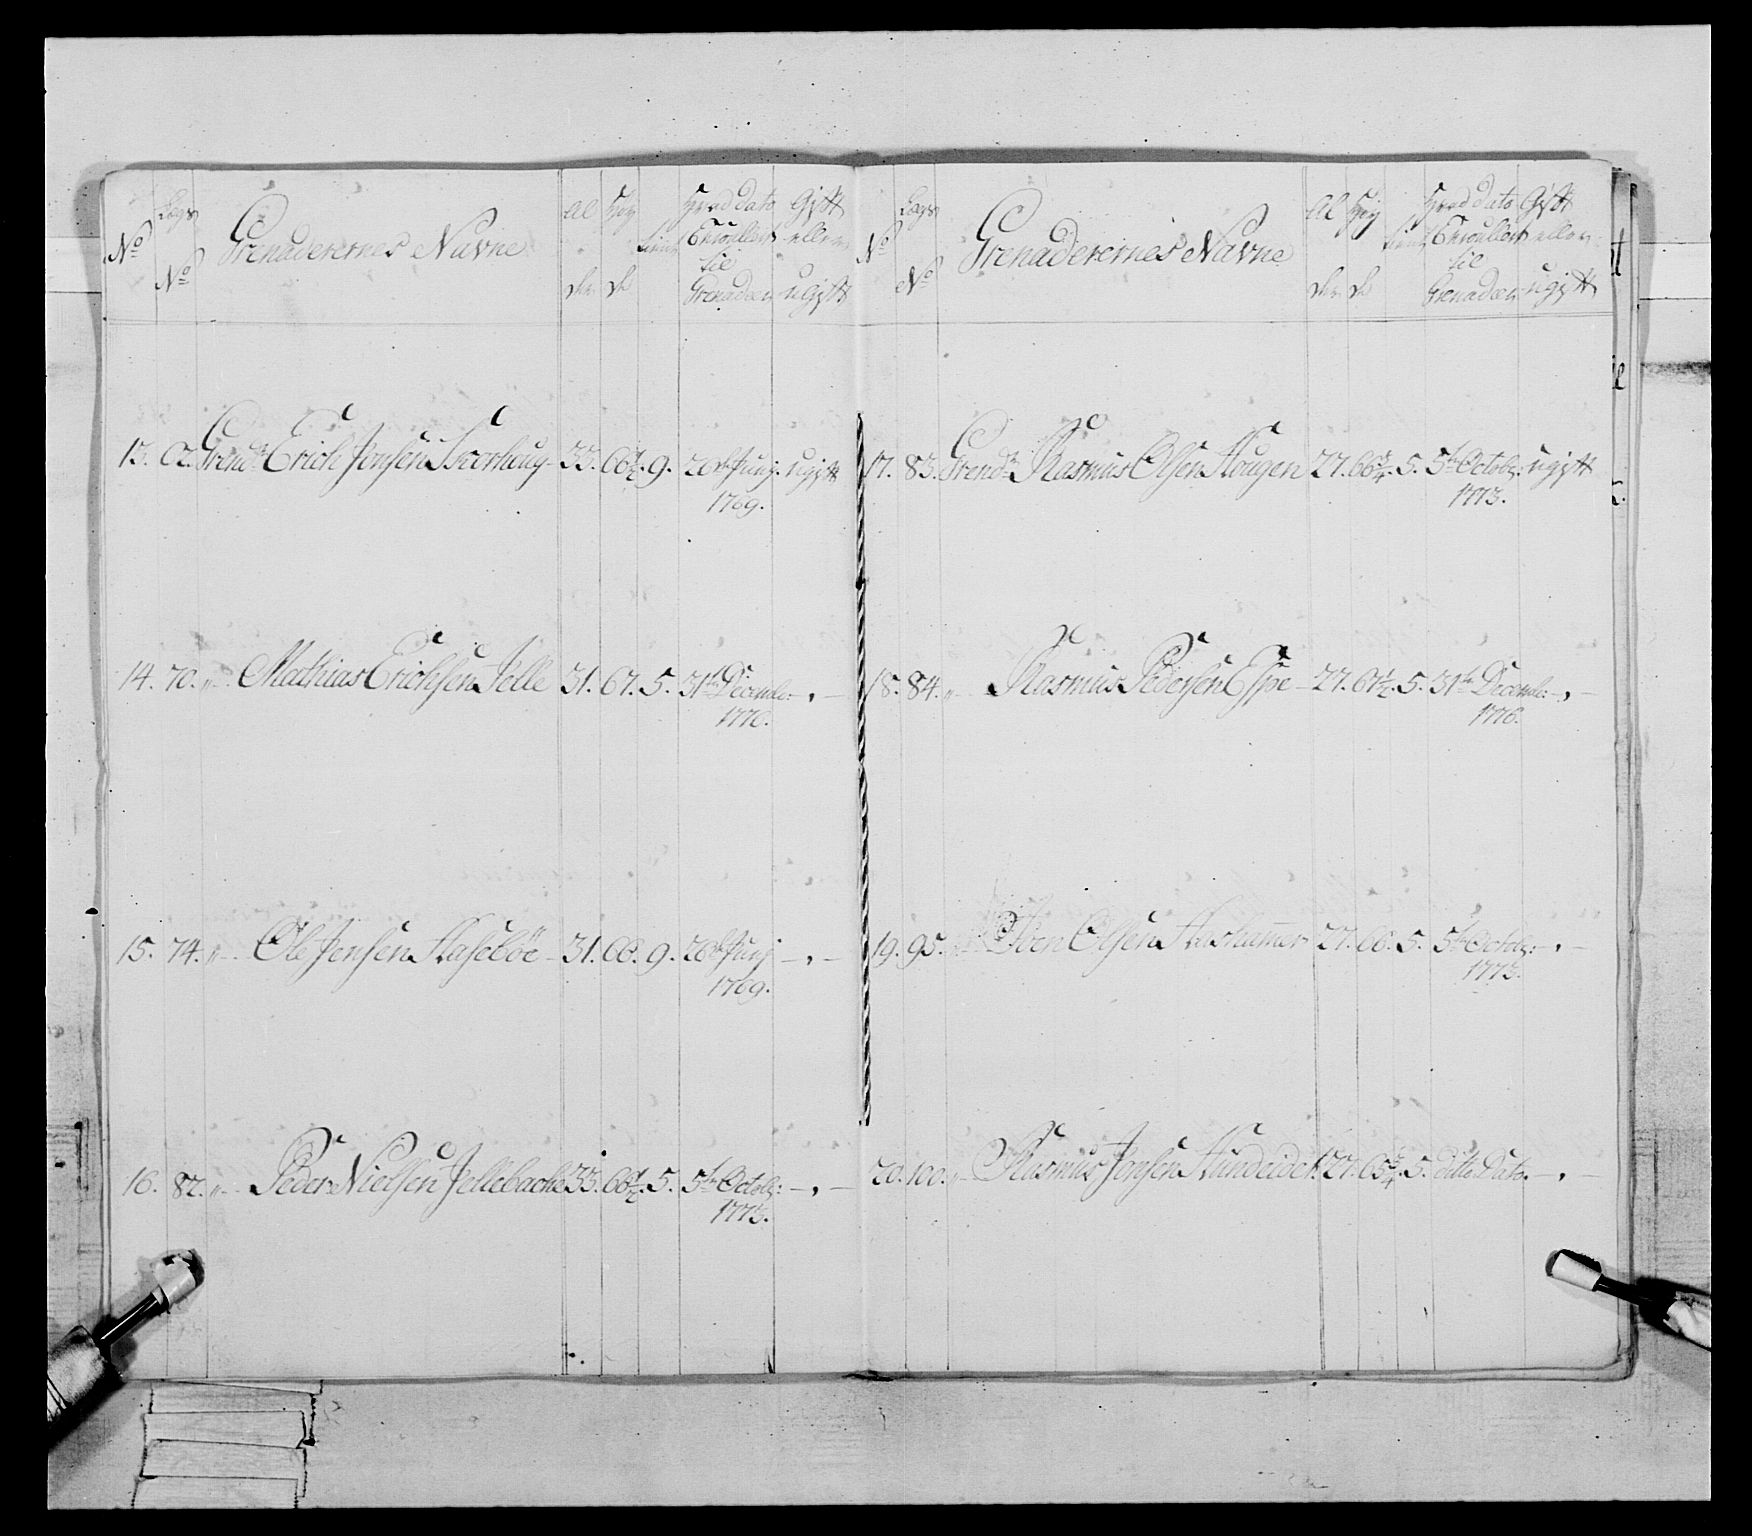 No
Lægs
No
Grenaderernes Navne
Al
der
Høy
de
Hvad dato
Enroullert
til
Grenadeer
Gift
eller
ugift
13. 62. Grend: Erich Jonsen 33. 66 1/2. 9. 26de Junj: ugift
1769.
14. 70. „ Mathias Erichsen Jelle 31. 67. 5. 31te Decemb: — , —
1770.
15. 74. „ Ole Jensen Haseböe 31. 66. 9. 26de Junj — , —
1769.
16. 82. „ Peder Nielsen Jellebache 33. 66 1/2. 5. 5te Octob: — , —
1773.
No
Lægs
No
Grenaderernes Navne
Al
der
Høy
de
Hvad dato
Enroullert
til
Grenadeer
Gift
eller
ugift
17. 83. Grend: Rasmus Olsen Hougen 27. 66 3/4. 5. 5te Octob: ugift
1773.
18. 84. „ Rasmus Pedersen Espe 27. 67 1/2. 5. 31te Decemb: — , —
1776.
19. 95. Iben Olsen 27. 66. 5. 5te Octob: — , —
1773.
20. 100. „ Rasmus Jensen Hundeidet 27. 65 3/4. 5. ditto Dato. — , —